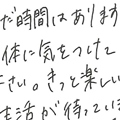 だ時間はあります
体に気をつけて
さい。きっと楽しい
生活が待っていま